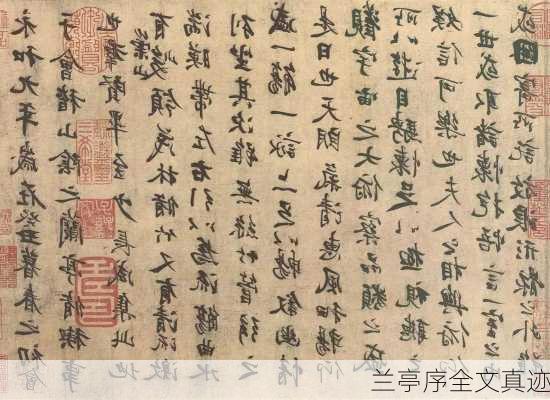 永和九年歲在癸丑暮春之初會
于會稽山陰之蘭亭脩稧事
也羣賢畢至少長咸集此地
有崇山峻領茂林脩竹又有清流激
湍暎帶左右引以為流觴曲水
列坐其次雖無絲竹管弦之
盛一觴一詠亦足以暢敘幽情
是日也天朗氣清惠風和暢仰
觀宇宙之大俯察品類之盛
所以遊目騁懷足以極視聽之
娛信可樂也夫人之相與俯仰
一世或取諸懷抱悟言一室之內
或因寄所託放浪形骸之外雖
兰亭序全文真迹